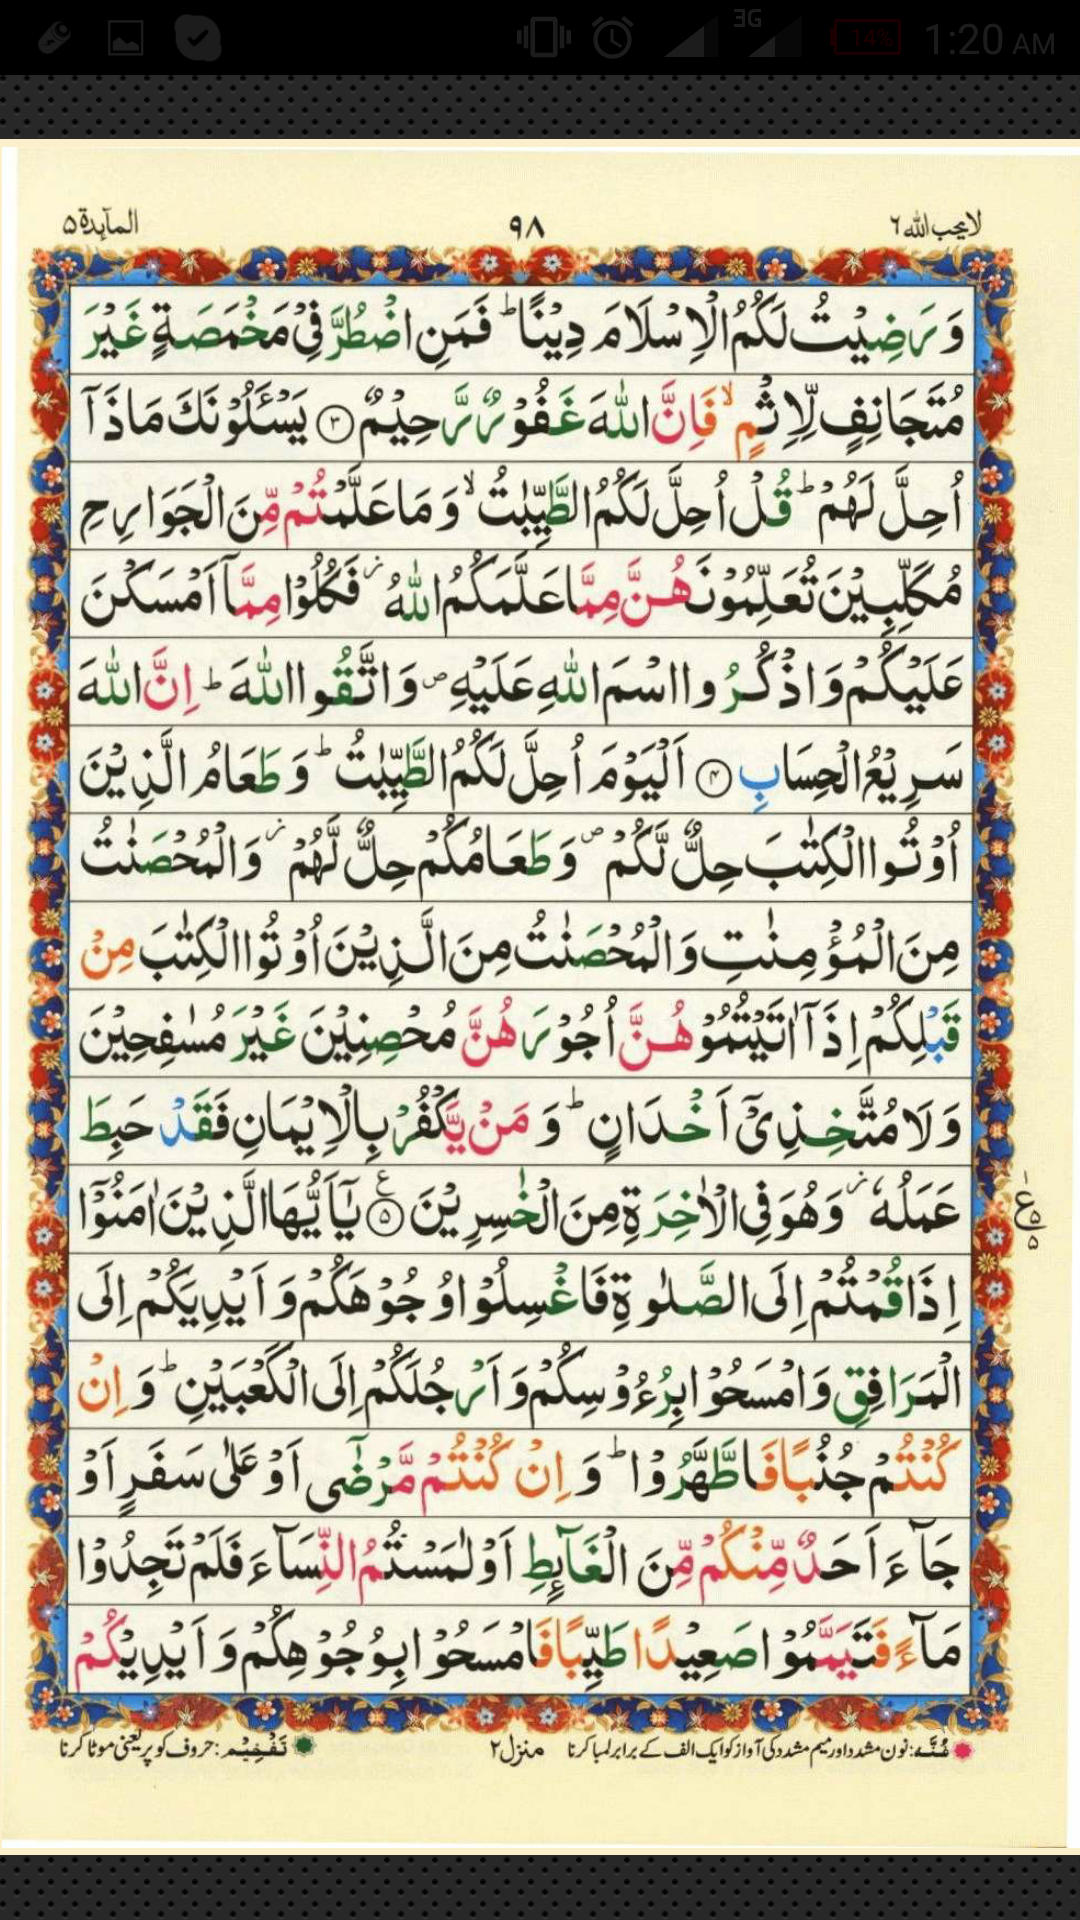 3G
14%
1:20 AM
لایحب اللہ ٦
٩٨
المآىِٕدة ٥
وَ رَضِیْتُ لَكُمُ الْاِسْلَامَ دِیْنًاؕ فَمَنِ اضْطُرَّ فِیْ مَخْمَصَةٍ غَیْرَ
مُتَجَانِفٍ لِّاِثْمٍۙ فَاِنَّ اللّٰهَ غَفُوْرٌ رَّحِیْمٌ ۝٣ یَسْـَٔلُوْنَكَ مَا ذَاۤ
اُحِلَّ لَهُمْؕ قُلْ اُحِلَّ لَكُمُ الطَّیِّبٰتُۙ وَ مَا عَلَّمْتُمْ مِّنَ الْجَوَارِحِ
مُكَلِّبِیْنَ تُعَلِّمُوْنَهُنَّ مِمَّا عَلَّمَكُمُ اللّٰهُ٘ فَكُلُوْا مِمَّاۤ اَمْسَكْنَ
عَلَیْكُمْ وَ اذْكُرُوا اسْمَ اللّٰهِ عَلَیْهِ۪ وَ اتَّقُوا اللّٰهَؕ اِنَّ اللّٰهَ
سَرِیْعُ الْحِسَابِ ۝٤ اَلْیَوْمَ اُحِلَّ لَكُمُ الطَّیِّبٰتُؕ وَ طَعَامُ الَّذِیْنَ
اُوْتُوا الْكِتٰبَ حِلٌّ لَّكُمْ۪ وَ طَعَامُكُمْ حِلٌّ لَّهُمْ٘ وَ الْمُحْصَنٰتُ
مِنَ الْمُؤْمِنٰتِ وَ الْمُحْصَنٰتُ مِنَ الَّذِیْنَ اُوْتُوا الْكِتٰبَ مِنْ
قَبْلِكُمْ اِذَاۤ اٰتَیْتُمُوْهُنَّ اُجُوْرَهُنَّ مُحْصِنِیْنَ غَیْرَ مُسٰفِحِیْنَ
وَ لَا مُتَّخِذِیْۤ اَخْدَانٍؕ وَ مَنْ یَّكْفُرْ بِالْاِیْمَانِ فَقَدْ حَبِطَ
عَمَلُهٗ٘ وَ هُوَ فِی الْاٰخِرَةِ مِنَ الْخٰسِرِیْنَ ۝٥ ع یٰۤاَیُّهَا الَّذِیْنَ اٰمَنُوْۤا
اِذَا قُمْتُمْ اِلَی الصَّلٰوةِ فَاغْسِلُوْا وُجُوْهَكُمْ وَ اَیْدِیَكُمْ اِلَی
الْمَرَافِقِ وَ امْسَحُوْا بِرُءُوْسِكُمْ وَ اَرْجُلَكُمْ اِلَی الْكَعْبَیْنِؕ وَ اِنْ
كُنْتُمْ جُنُبًا فَاطَّهَّرُوْاؕ وَ اِنْ كُنْتُمْ مَّرْضٰۤی اَوْ عَلٰی سَفَرٍ اَوْ
جَآءَ اَحَدٌ مِّنْكُمْ مِّنَ الْغَآىِٕطِ اَوْ لٰمَسْتُمُ النِّسَآءَ فَلَمْ تَجِدُوْا
مَآءً فَتَیَمَّمُوْا صَعِیْدًا طَیِّبًا فَامْسَحُوْا بِوُجُوْهِكُمْ وَ اَیْدِیْكُمْ
غُنَّہ: نون مشدد اور میم مشدد کی آواز کو ایک الف کے برابر لمبا کرنا
منزل ٢
تَفْخِیْم: حروف کو پُر یعنی موٹا کرنا